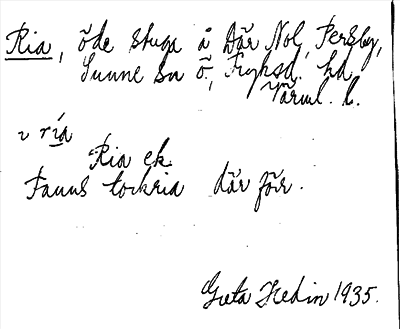 Ria, öde stuga å Där Nol, Persby,
Sunne sn ö, Fryksd. hd
Värml. l.
v ría
Ria ek.
Fanns torkria där förr.
Greta Hedin 1935.